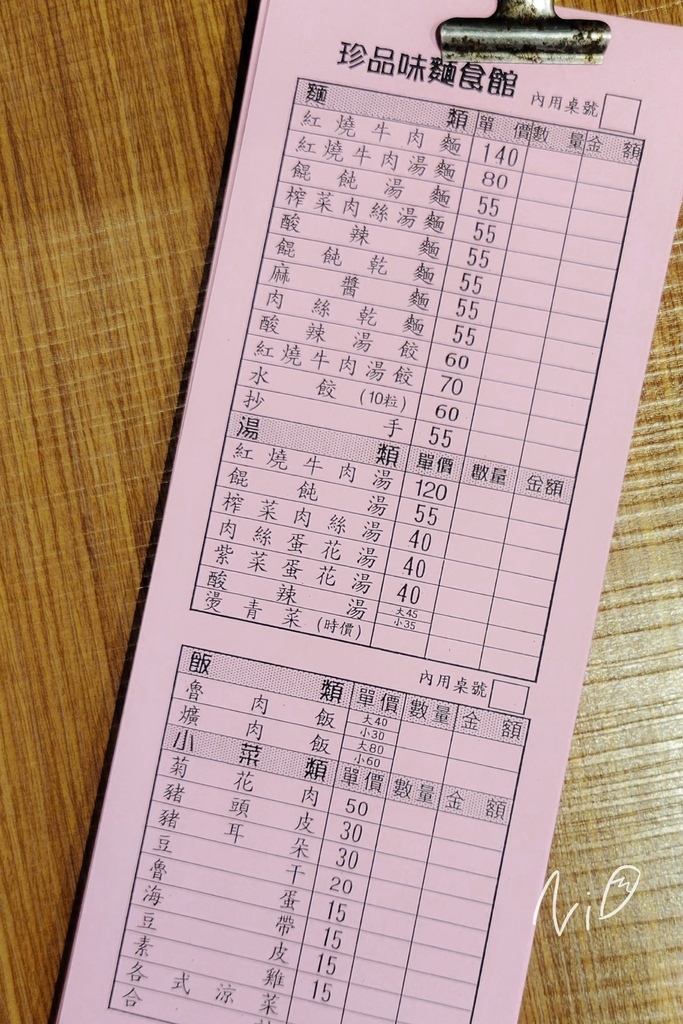 珍品味麵食館
內用桌號
麵類 單價 數量 金額
紅燒牛肉麵 140
紅燒牛肉湯麵 80
餛飩湯麵 55
榨菜肉絲湯麵 55
酸辣麵 55
餛飩乾麵 55
麻醬麵 55
肉絲乾麵 55
酸辣湯餃 60
紅燒牛肉湯餃 70
水餃(10粒) 60
抄手 55
湯類 單價 數量 金額
紅燒牛肉湯 120
餛飩湯 55
榨菜肉絲湯 40
肉絲蛋花湯 40
紫菜蛋花湯 40
酸辣湯 大45 小35
燙青菜(時價)
內用桌號
飯類 單價 數量 金額
魯肉飯 大40 小30
爌肉飯 大80 小60
小菜類 單價 數量 金額
菊花肉 50
豬頭皮 30
豬耳朵 30
豆干 20
魯蛋 15
海帶 15
豆皮 15
素雞 15
各式涼菜
合
NiB